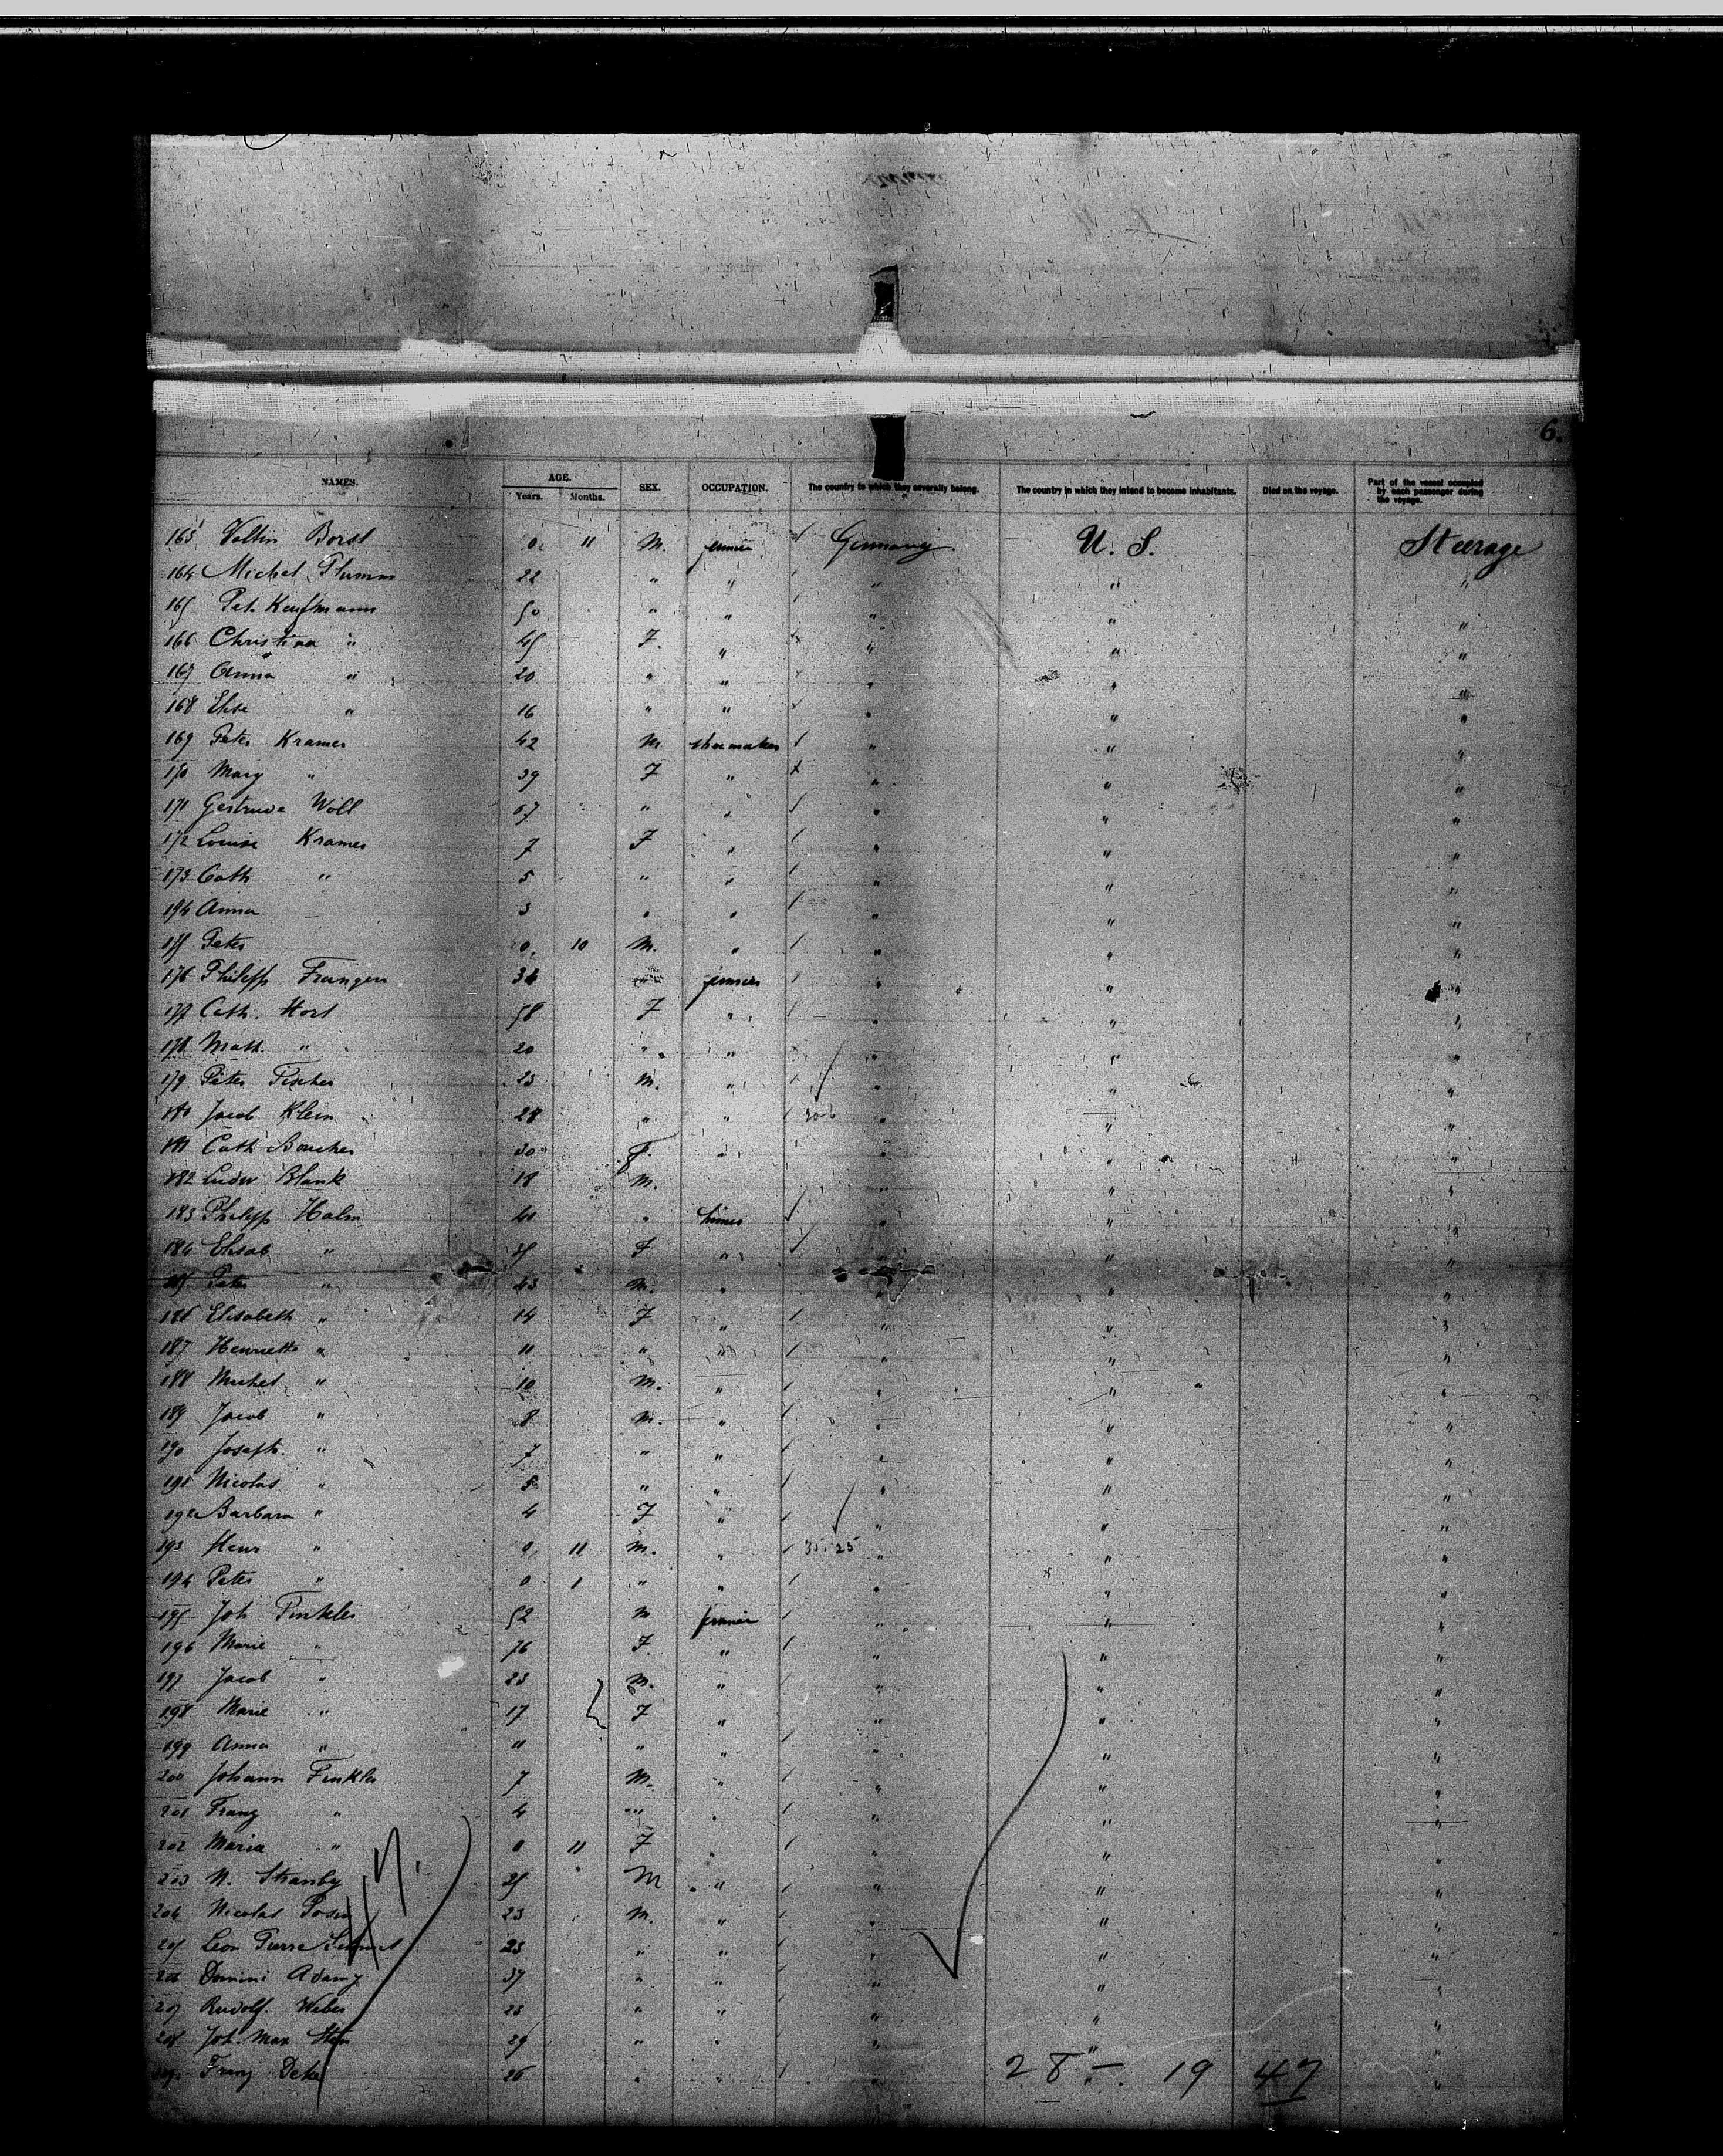 6.
NAMES. AGE. Years. Months. SEX. OCCUPATION. The country to which they severally belong. The country in which they intend to become inhabitants. Died on the voyage. Part of the vessel occupied by each passenger during the voyage.
163 Valtin Borst 0 11 M. Germany U. S. Steerage
164 Michel 22 " " " " "
165 Pet. Kaufmann 50 " " " " "
166 Christina " 45 F. " " " "
167 Anna " 20 " " " " "
168 Elise " 16 " " " " "
169 Peter Kramer 42 M shoemaker " " "
170 Mary " 39 F " " " "
171 Gertrude Woll 67 " " " " "
172 Louise Kramer 7 F " " " "
173 Cath " 5 " " " " "
174 Anna 3 " " " " "
175 Peter 0 10 M. " " " "
176 Philipp 36 " " " "
177 Cath. Hort 58 F " " " "
178 Math. " 20 " " " " "
179 Peter Fischer 23 M. " " " "
180 Jacob Klein 28 " " " " "
181 Cath 30 F. " " " "
182 Blank 18 M. " " "
183 Philipp Halm 40 " " " "
184 Elisab " 35 F " " " "
185 Peter " M. " " " "
186 Elisabeth " 14 F " " " "
187 Henriette " 11 " " " " "
188 Michel " 10 M. " " " "
189 Jacob " 8 M. " " " "
190 Joseph. " 7 " " " " "
191 Nicolas " 5 " " " " "
192 Barbara " 4 F " " " "
193 Henr " 0 11 M. " " " "
194 Peter " 0 1 " " " " "
195 Joh Finkler 52 M " " "
196 Marie " F. " " " "
197 Jacob " 23 M. " " " "
198 Marie " 17 F " " " "
199 Anna " 11 " " " " "
200 Johann Finkler 7 M. " " " "
201 Franz " 4 " " " " "
202 Maria " 0 11 F " " " "
203 N. 25 M " " " "
204 Nicolas 23 M. " " " "
205 Leon Pierre 23 " " " " "
206 Adamy 37 " " " " "
207 Rudolf. Weber 23 " " " " "
208 Joh. Max 29 " " " " "
209 Franz 26 " " " " "
28 – 19 47